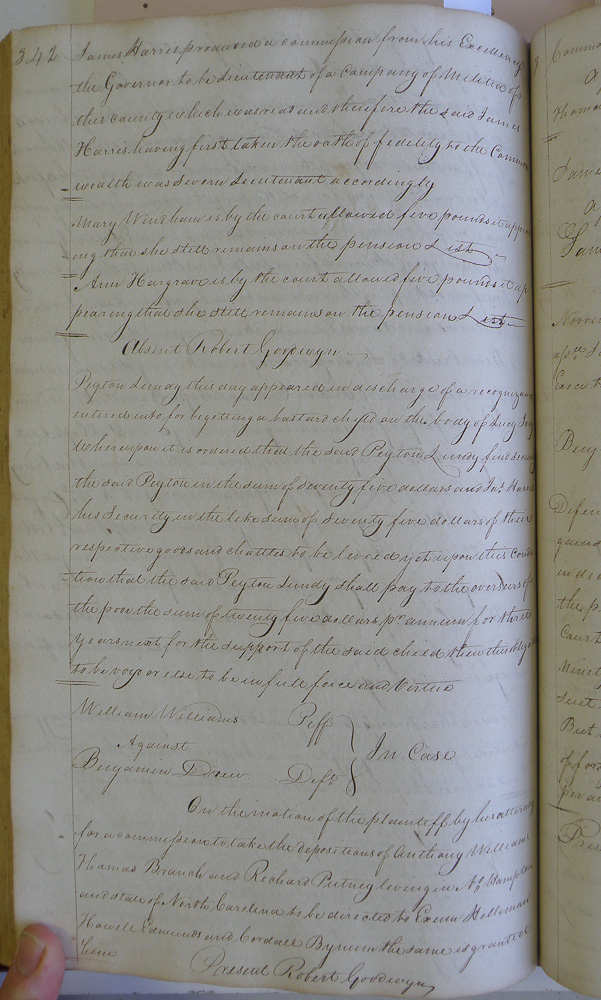 342
James Harris produced a commission from his Excellency
the Governor to be Lieutenant of a company of Militia of
this county which was read and therefore the said James
Harris having first taken the oath of fidelity to the Common
wealth was sworn Lieutenant accordingly
Mary Windham is by the court allowed five pounds it appear
ing that she still remains on the pension List
Ann Hargrave is by the court allowed five pounds it ap
pearing that she still remains on the pension List
Absent Robert Goodwyn
Peyton Lundy this day appeared in discharge of a recognizance
entered into for begetting a bastard child on the body of Lucy
Whereupon it is ordered that the said Peyton Lundy find
the said Peyton in the sum of seventy five dollars and Jas. Harris
his Security in the like sum of seventy five dollars of their
respective goods and chattles to be levied yet upon this condi
tion that the said Peyton Lundy shall pay to the overseers of
the poor the sum of twenty five dollars pr annum for three
years next for the support of the said child then this
to be void or else to be in full force and virtue
William Williams Plff
Against In Case
Benjamin Drew Deft
On the motion of the plaintiff by his attorney
for a commission to take the depositions of Anthony Williams
Thomas Branch and Richard Putney living in No. Hampton
and state of North Carolina to be directed to Exum Holleman
Howell Edmunds and Cordall Bynum the same is granted
him
Present Robert Goodwyn